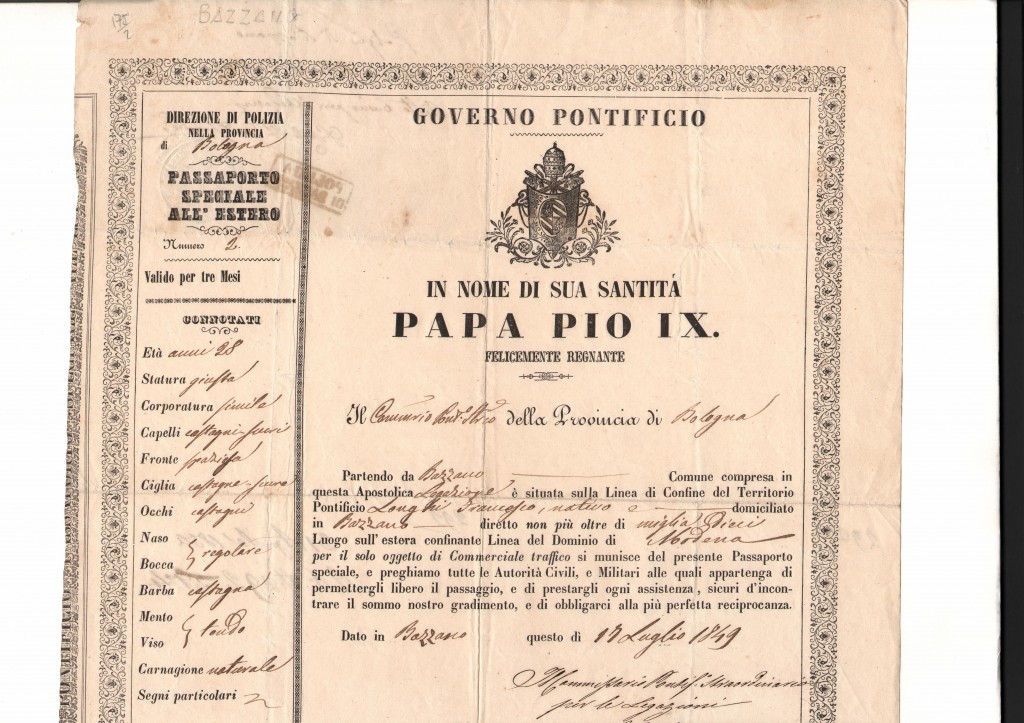 BAZZANO
DIREZIONE DI POLIZIA
NELLA PROVINCIA
di Bologna
PASSAPORTO
SPECIALE
ALL' ESTERO
Numero 2.
Valido per tre Mesi
CONNOTATI
Età anni 28
Statura giusta
Corporatura simile
Capelli castagni-scuri
Fronte spaziosa
Ciglia castagne-scure
Occhi castagni
Naso
regolare
Bocca
Barba castagna
Mento
tondo
Viso
Carnagione naturale
Segni particolari
GOVERNO PONTIFICIO
IN NOME DI SUA SANTITÁ
PAPA PIO IX.
FELICEMENTE REGNANTE
Il della Provincia di Bologna
Partendo da Bazzano Comune compresa in
questa Apostolica Legazione è situata sulla Linea di Confine del Territorio
Pontificio Longhi Francesco, nativo e domiciliato
in Bazzano diretto non più oltre di miglia Dieci
Luogo sull' estera confinante Linea del Dominio di Modena
per il solo oggetto di Commerciale traffico si munisce del presente Passaporto
speciale, e preghiamo tutte le Autorità Civili, e Militari alle quali appartenga di
permettergli libero il passaggio, e di prestargli ogni assistenza, sicuri d'incon-
trare il sommo nostro gradimento, e di obbligarci alla più perfetta reciprocanza.
Dato in Bazzano questo di 17 Luglio 1849
Il Commissario Pontif. Straordinario
per le Legazioni